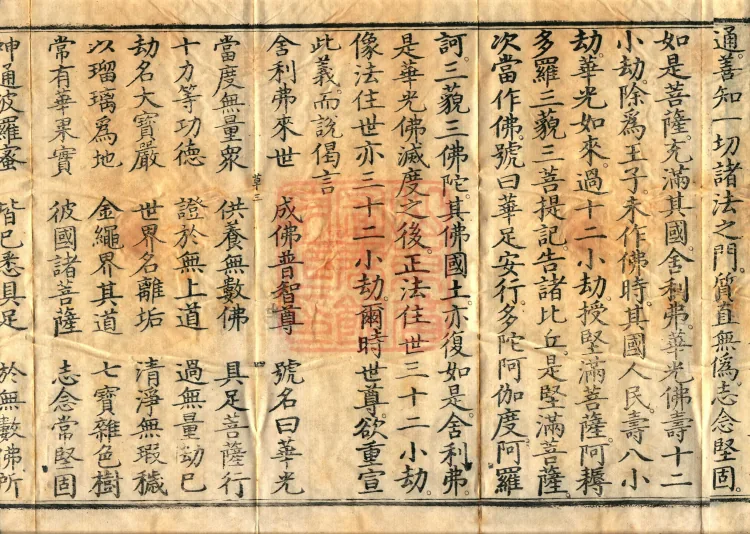 通。善知一切諸法之門。質直無僞志念堅固。
如是菩薩。充滿其國。舍利弗。華光佛壽十二
小劫。除爲王子未作佛時。其國人民壽八小
劫。華光如來。過十二小劫。授堅滿菩薩阿耨
多羅三藐三菩提記。告諸比丘。是堅滿菩薩。
次當作佛。號曰華足安行多陀阿伽度阿羅
訶。三藐三佛陀。其佛國土。亦復如是。舍利弗。
是華光佛滅度之後。正法住世三十二小劫
像法住世亦三十二小劫。爾時世尊。欲重宣
此義。而說偈言
舍利弗來世　成佛普智尊　號名曰華光
草三
當度無量衆　供養無數佛　具足菩薩行
十力等功德　證於無上道　過無量劫已
劫名大寶嚴　世界名離垢　清淨無瑕穢
以瑠璃爲地　金繩界其道　七寶雜色樹
常有華果實　彼國諸菩薩　志念常堅固
神通波羅蜜　皆已悉具足　於無數佛所